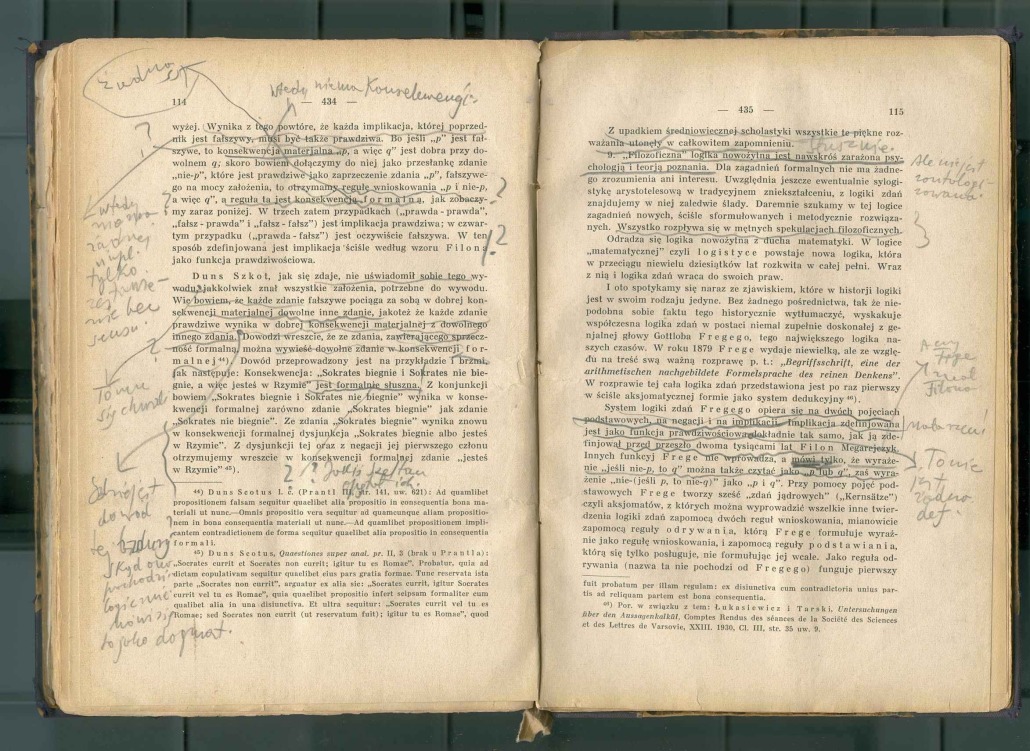 żadna
wtedy niema Konsekwencji
114
— 434 —
wyżej. Wynika z tego powtóre, że każda implikacja, której poprzed-
nik jest fałszywy, musi być także prawdziwa. Bo jeśli „p” jest fał-
szywe, to konsekwencja materjalna „p, a więc q” jest dobra przy do-
wolnem q; skoro bowiem dołączymy do niej jako przesłankę zdanie
„nie-p”, które jest prawdziwe jako zaprzeczenie zdania „p”, fałszywe-
go na mocy założenia, to otrzymamy regułę wnioskowania „p i nie-p,
a więc q”, a reguła ta jest konsekwencją formalną, jak zobaczy-
my zaraz poniżej. W trzech zatem przypadkach („prawda - prawda”,
„fałsz - prawda” i „fałsz - fałsz”) jest implikacja prawdziwa; w czwar-
tym przypadku („prawda - fałsz”) jest oczywiście fałszywa. W ten
sposób zdefinjowana jest implikacja ściśle według wzoru Filona
jako funkcja prawdziwościowa.
Duns Szkot, jak się zdaje, nie uświadomił sobie tego wy-
wodu, jakkolwiek znał wszystkie założenia, potrzebne do wywodu.
Wie bowiem, że każde zdanie fałszywe pociąga za sobą w dobrej kon-
sekwencji materjalnej dowolne inne zdanie, jakoteż że każde zdanie
prawdziwe wynika w dobrej konsekwencji materjalnej z dowolnego
innego zdania. Dowodzi wreszcie, że ze zdania, zawierającego sprzecz-
ność formalną, można wywieść dowolne zdanie w konsekwencji for-
malnej⁴⁴) Dowód przeprowadzony jest na przykładzie i brzmi,
jak następuje: Konsekwencja: „Sokrates biegnie i Sokrates nie bie-
gnie, a więc jesteś w Rzymie” jest formalnie słuszna. Z konjunkcji
bowiem „Sokrates biegnie i Sokrates nie biegnie” wynika w konse-
kwencji formalnej zarówno zdanie „Sokrates biegnie” jak zdanie
„Sokrates nie biegnie”. Ze zdania „Sokrates biegnie” wynika znowu
w konsekwencji formalnej dysjunkcja „Sokrates biegnie albo jesteś
w Rzymie”. Z dysjunkcji tej oraz z negacji jej pierwszego członu
otrzymujemy wreszcie w konsekwencji formalnej zdanie „jesteś
w Rzymie” ⁴⁵).
⁴⁴) Duns Scotus l. c. (Prantl III, str. 141, uw. 621): Ad quamlibet
propositionem falsam sequitur quaelibet alia propositio in consequentia bona ma-
teriali ut nunc.—Omnis propositio vera sequitur ad quamcunque aliam propositio-
nem in bona consequentia materiali ut nunc.—Ad quamlibet propositionem impli-
cantem contradictionem de forma sequitur quaelibet alia propositio in consequentia
formali.
⁴⁵) Duns Scotus, Quaestiones super anal. pr. II, 3 (brak u Prantla):
„Socrates currit et Socrates non currit; igitur tu es Romae”. Probatur, quia ad
dictam copulativam sequitur quaelibet eius pars gratia formae. Tunc reservata ista
parte „Socrates non currit”, arguatur ex alia sic: „Socrates currit, igitur Socrates
currit vel tu es Romae”, quia quaelibet propositio infert seipsam formaliter cum
qualibet alia in una disiunctiva. Et ultra sequitur: „Socrates currit vel tu es
Romae; sed Socrates non currit (ut reservatum fuit); igitur tu es Romae”, quod
— 435 —
115
Z upadkiem średniowiecznej scholastyki wszystkie te piękne roz-
ważania utonęły w całkowitem zapomnieniu.
9. „Filozoficzna” logika nowożytna jest nawskróś zarażona psy-
chologją i teorją poznania. Dla zagadnień formalnych nie ma żadne-
go zrozumienia ani interesu. Uwzględnia jeszcze ewentualnie sylogi-
stykę arystotelesową w tradycyjnem zniekształceniu, z logiki zdań
znajdujemy w niej zaledwie ślady. Daremnie szukamy w tej logice
zagadnień nowych, ściśle sformułowanych i metodycznie rozwiąza-
nych. Wszystko rozpływa się w mętnych spekulacjach filozoficznych.
Odradza się logika nowożytna z ducha matematyki. W logice
„matematycznej” czyli logistyce powstaje nowa logika, która
w przeciągu niewielu dziesiątków lat rozkwita w całej pełni. Wraz
z nią i logika zdań wraca do swoich praw.
I oto spotykamy się naraz ze zjawiskiem, które w historji logiki
jest w swoim rodzaju jedyne. Bez żadnego pośrednictwa, tak że nie-
podobna sobie faktu tego historycznie wytłumaczyć, wyskakuje
współczesna logika zdań w postaci niemal zupełnie doskonałej z ge-
njalnej głowy Gottloba Fregego, tego największego logika na-
szych czasów. W roku 1879 Frege wydaje niewielką, ale ze wzglę-
du na treść swą ważną rozprawę p. t.: „Begriffsschrift, eine der
arithmetischen nachgebildete Formelsprache des reinen Denkens”.
W rozprawie tej cała logika zdań przedstawiona jest po raz pierwszy
w ściśle aksjomatycznej formie jako system dedukcyjny ⁴⁶).
System logiki zdań Fregego opiera się na dwóch pojęciach
podstawowych, na negacji i na implikacji. Implikacja zdefinjowana
jest jako funkcja prawdziwościowa dokładnie tak samo, jak ją zde-
finjował przed przeszło dwoma tysiącami lat Filon Megarejczyk.
Innych funkcyj Frege nie wprowadza, a mówi tylko, że wyraże-
nie „jeśli nie-p, to q” można także czytać jako „p lub q”, zaś wyra-
żenie „nie-(jeśli p, to nie-q)” jako „p i q”. Przy pomocy pojęć pod-
stawowych Frege tworzy sześć „zdań jądrowych” („Kernsätze”)
czyli aksjomatów, z których można wyprowadzić wszelkie inne twier-
dzenia logiki zdań zapomocą dwóch reguł wnioskowań, mianowicie
zapomocą reguły odrywania, którą Frege formułuje wyraź-
nie jako regułę wnioskowania, i zapomocą reguły podstawiania,
którą się tylko posługuje, nie formułując jej wcale. Jako reguła od-
rywania (nazwa ta nie pochodzi od Fregego) funguje pierwszy
fuit probatum per illam regulam: ex disiunctiva cum contradictoria unius par-
tis ad reliquam partem est bona consequentia.
⁴⁶) Por. w związku z tem: Łukasiewicz i Tarski, Untersuchungen
über den Aussagenkalkül, Comptes Rendus des séances de la Société des Sciences
et des Lettres de Varsovie, XXIII. 1930, Cl. III, str. 35 uw. 9.